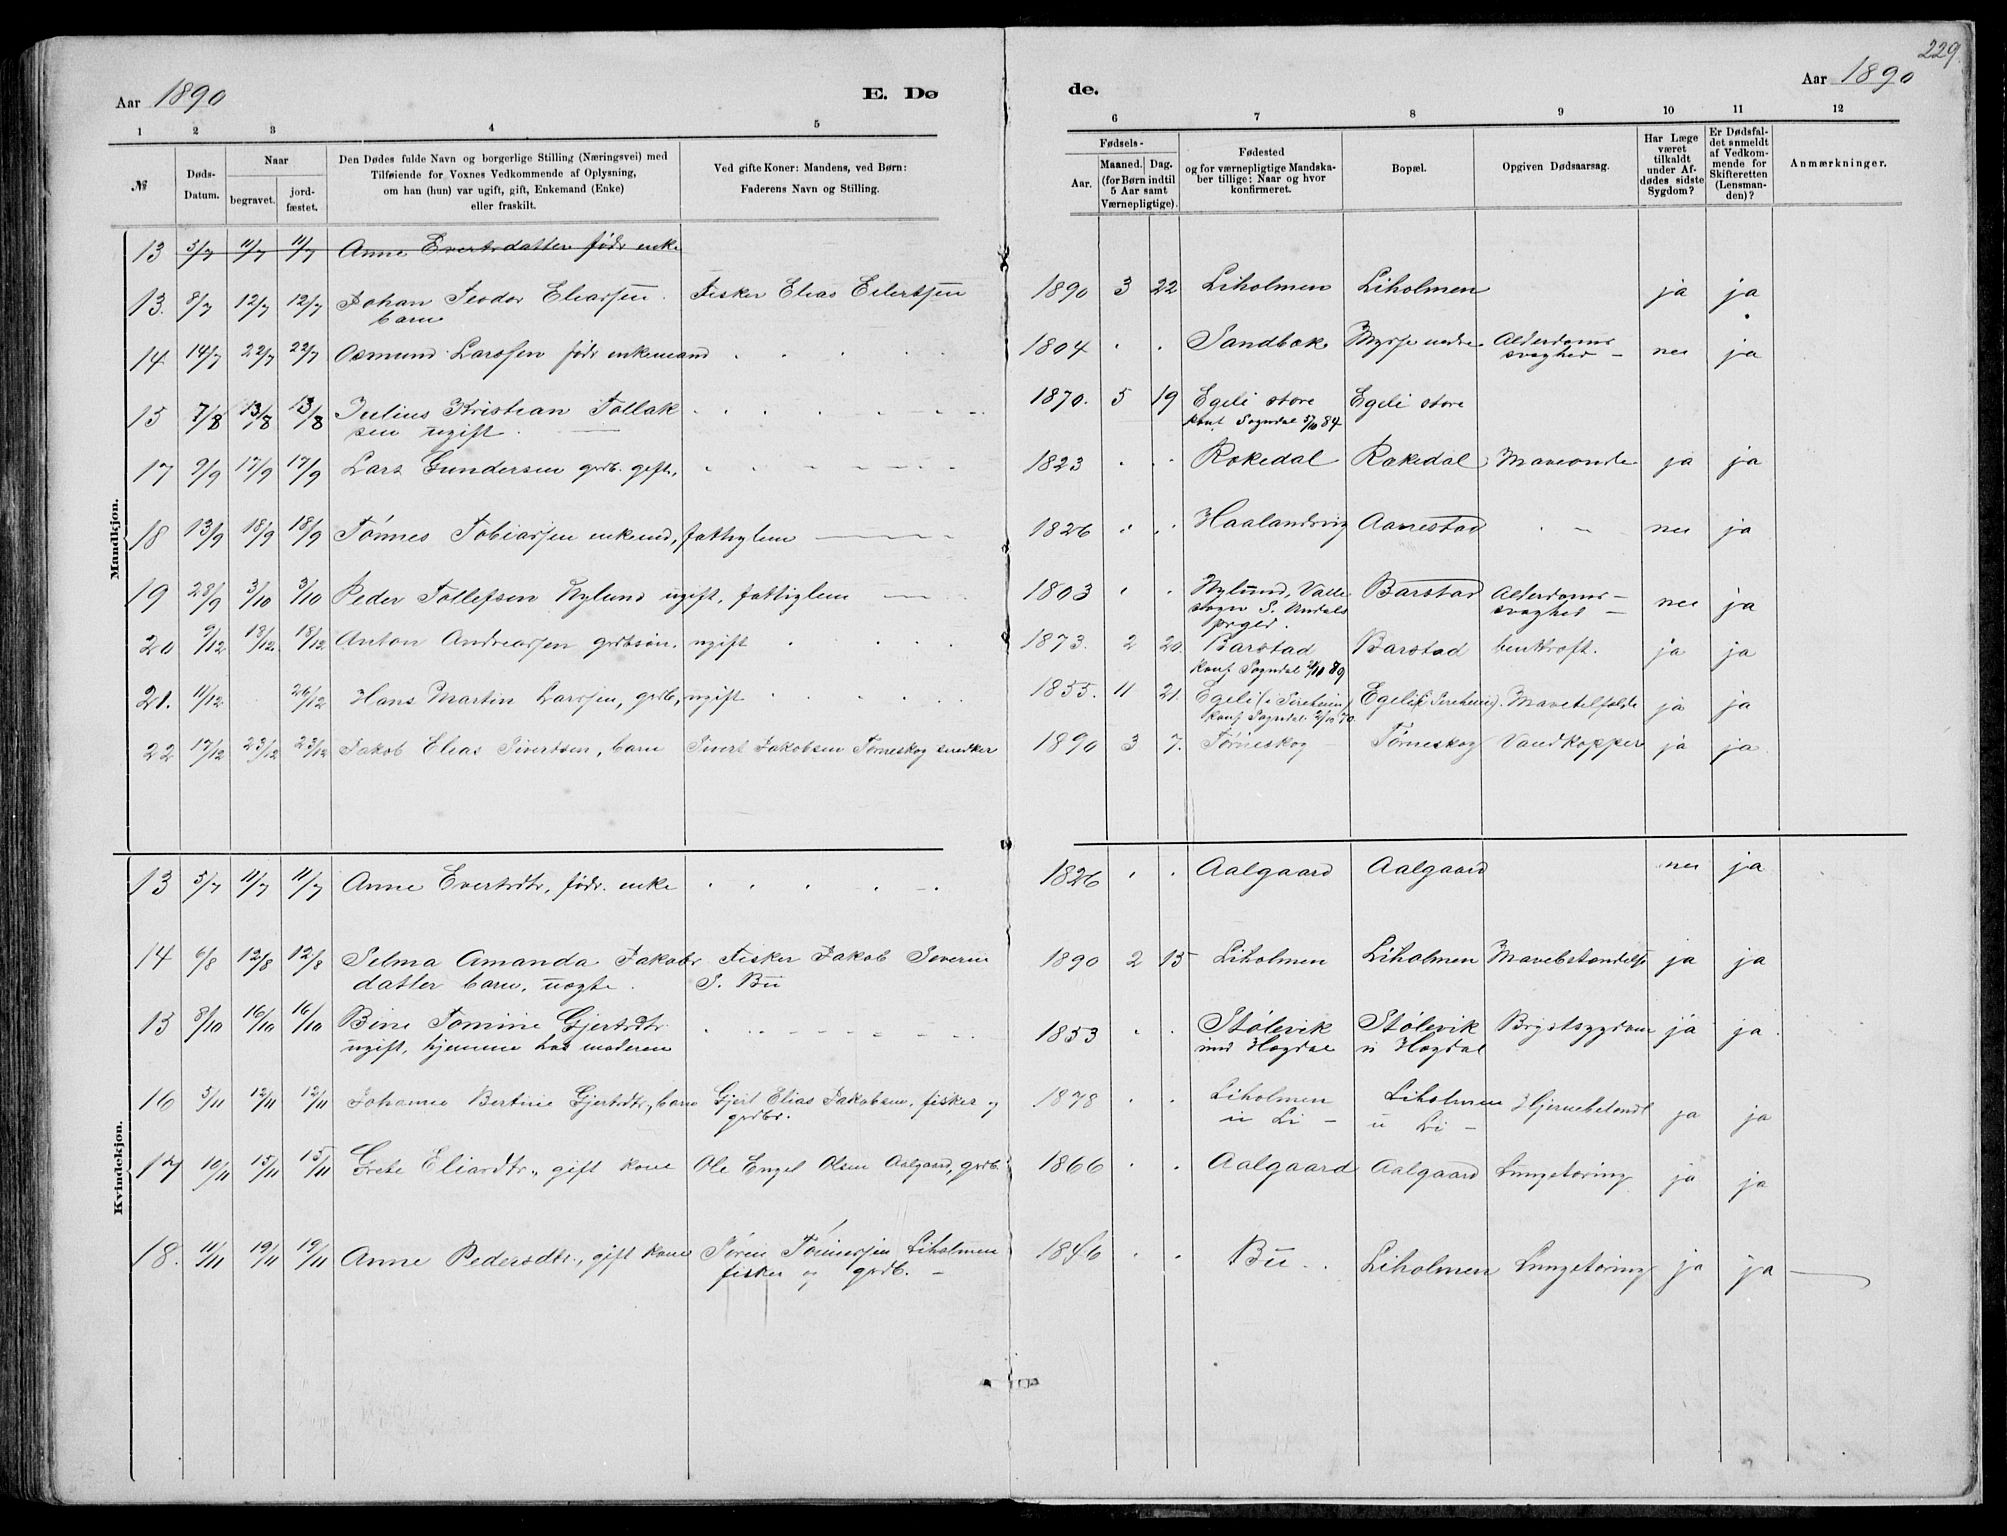 229.
Aar 1890
E. Dø
de.
Aar 1890
1 2 3 4 5 6 7 8 9 10 11 12
№
Døds-
Datum.
Naar
begravet.
jord-
fæstet.
Den Dødes fulde Navn og borgerlige Stilling (Næringsvei) med
Tilføiende for Voxnes Vedkommende af Oplysning,
om han (hun) var ugift, gift, Enkemand (Enke)
eller fraskilt.
Ved gifte Koner: Mandens, ved Børn:
Faderens Navn og Stilling.
Fødsels-
Aar.
Maaned. Dag.
(for Børn indtil
5 Aar samt
Værnepligtige).
Fødested
og for værnepligtige Mandska-
ber tillige: Naar og hvor
konfirmeret.
Bopæl.
Opgiven Dødsaarsag.
Har Læge
været
tilkaldt
under Af-
dødes sidste
Sygdom?
Er Dødsfal-
det anmeldt
af Vedkom-
mende for
Skifteretten
(Lensman-
den)?
Anmærkninger.
Mandkjøn.
13 5/7 11/7 11/7 Anne Evertsdatter födr enke
13. 8/7 12/7 12/7 Johan Teodor Eliassen. Fisker Elias Eilertsen 1890 3 22 Liholmen Liholmen ja ja
barn
14 14/7 22/7 22/7 Osmund Larssen födr enkemand 1804 Sandbæk Myssе nedre Alderdoms-
svaghed nei ja
15 7/8 13/8 13/8 Julius Kristian Tollak 1870. 5 19 Egeli store Egeli store
sen ugift. konf Sogndal 5/10 84
17 9/9 17/9 17/9 Lars Gundersen grdb. gift, 1823 Rækedal Rækedal Maveonde ja ja
18 13/9 18/9 18/9 Tönnes Tobiassen enkemd, fattiglem 1826 Haalandsvig Aanestad nei ja
19 28/9 3/10 3/10 Peder Tollefsen Nylund ugift, fattiglem 1803 Nylund, Valle Barstad Alderdoms-
sogn S. Undals svaghed nei ja
prgld.
20 9/12 18/12 18/12 Anton Andreassen grdbsön. ugift 1873. 2 20. Barstad Barstad benkræft. ja ja
konf Sogndal 2/10 89
21. 11/12 26/12 Hans Martin Larssen, grdb, ugift 1855. 11 21. Egeli (i Sireheien) Egeli (i Sireheien). Mavetilfælde ja ja
konf Sogndal 2/10 70.
22 17/12 23/12 23/12 Jakob Elias Sivertsen, barn Sivert Jakobsen Törneskog snedker 1890 3 7. Törneskog Törneskog Vandkopper ja ja
Kvindekjøn.
13 5/7 11/7 11/7 Anne Evertsdtr, födr. enke 1826 Aalgaard Aalgaard nei ja
14 6/8 12/8 12/8 Selma Amanda Jakobs Fisker Jakob Severin 1890 2 15 Liholmen Liholmen ja ja
datter barn, uægte. S. Bu
13 8/10 16/10 16/10 Bine Tomine Gjertsdtr 1853 Stölevik Stölevik Brystsygdom ja ja
ugift, hjemme hos moderen und Hogdal u Hogdal
16 5/11 12/11 12/11 Johanne Bertine Gjertsdtr, barn Gjert Elias Jakobsen, fisker og 1878 Liholmen Liholmen Hjernebetændl ja ja
grdbr. u Li - u Li -
17 10/11 15/11 15/11 Grete Eliasdtr., gift kone Ole Engel Olsen Aalgaard, grdb. 1866 Aalgaard Aalgaard Lungetæring ja ja
18. 11/11 19/11 19/11 Anne Pedersdtr., gift kone Sören Tönnessen Liholmen 1846 Bu Liholmen Lungetæring ja ja
fisker og grdb.